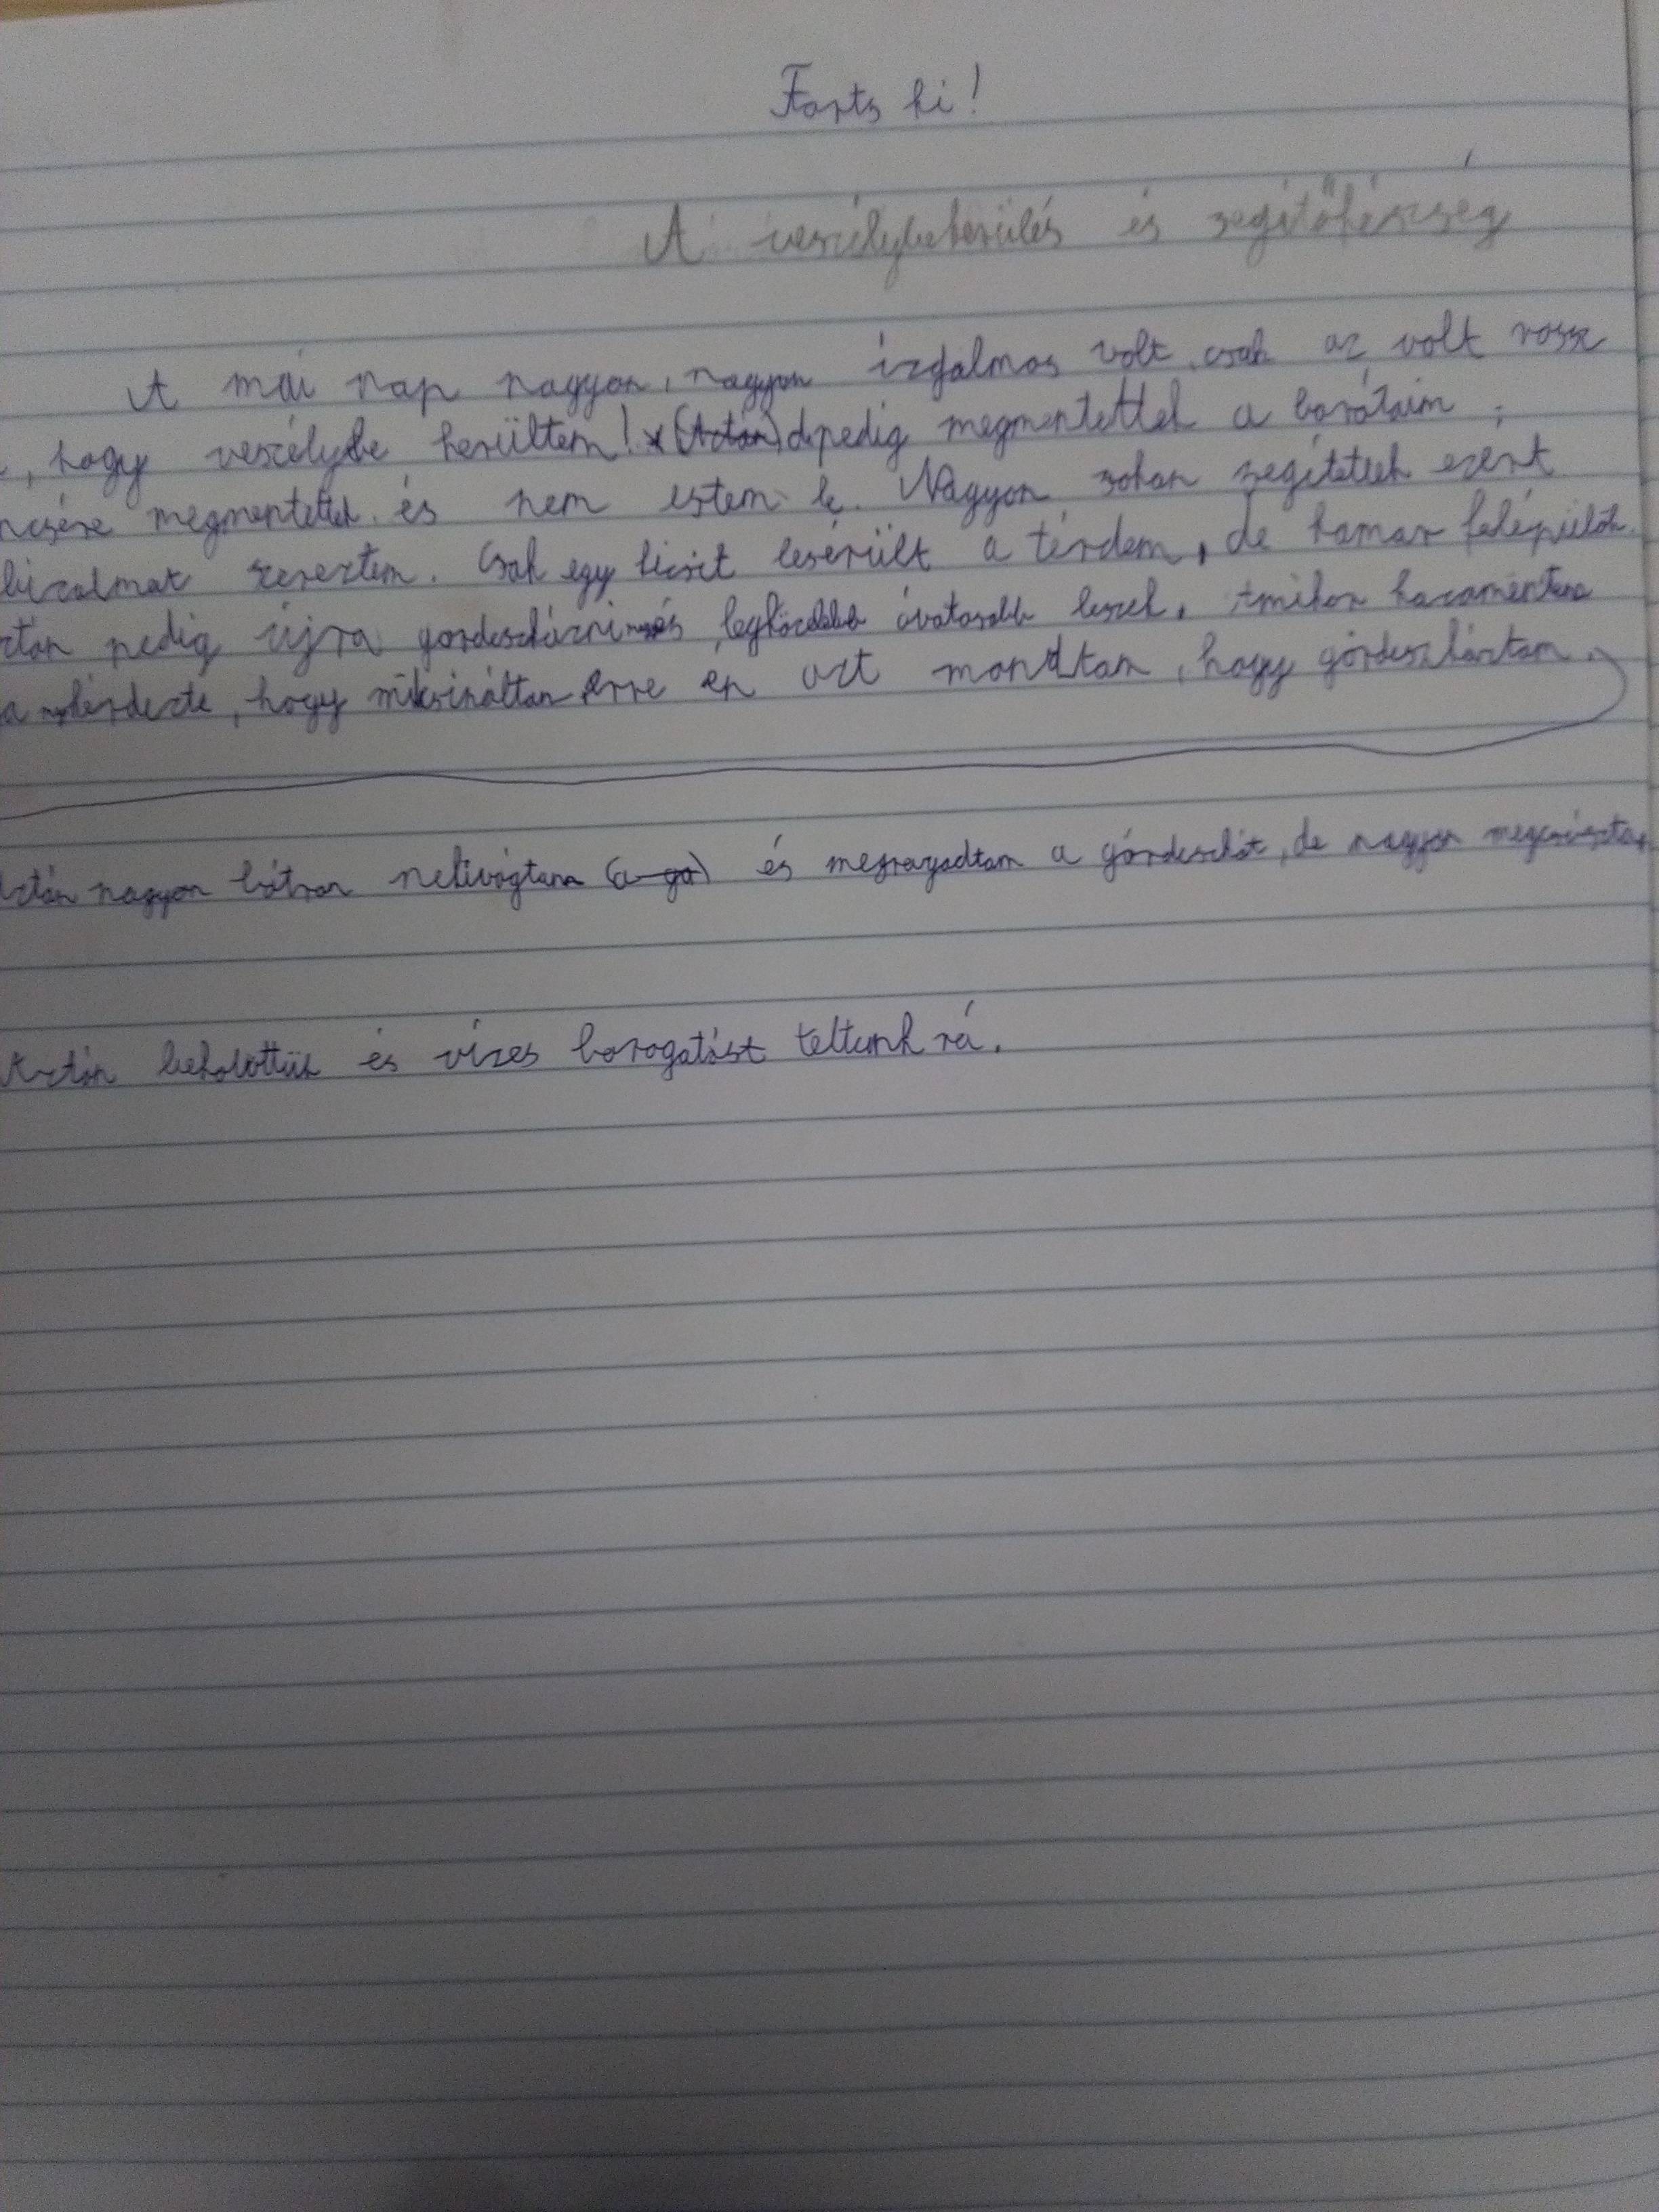 Tarts ki!
A veszélybekerülés és segítőkészség
A mai nap nagyon, nagyon izgalmas volt csak az volt rossz
, hogy veszélybe kerültem! x (Aztán) de pedig megmentettek a barátaim
ncsére megmentettek és nem estem le. Nagyon sokan segítettek ezért
bizalmat szereztem. Csak egy kicsit lesérült a térdem, de hamar felépülök.
ztán pedig újra gördeszkázni és legközelebb óvatosabb leszek. Amikor hazamentem
a kérdezte, hogy mit csináltam erre én azt mondtam, hogy gördeszkáztam.
ztán nagyon bátran nekivágtam (a gö) és megragadtam a gördeszkát, de nagyon megcsúsztam
Aztán bekötöttük és vizes borogatást tettünk rá.